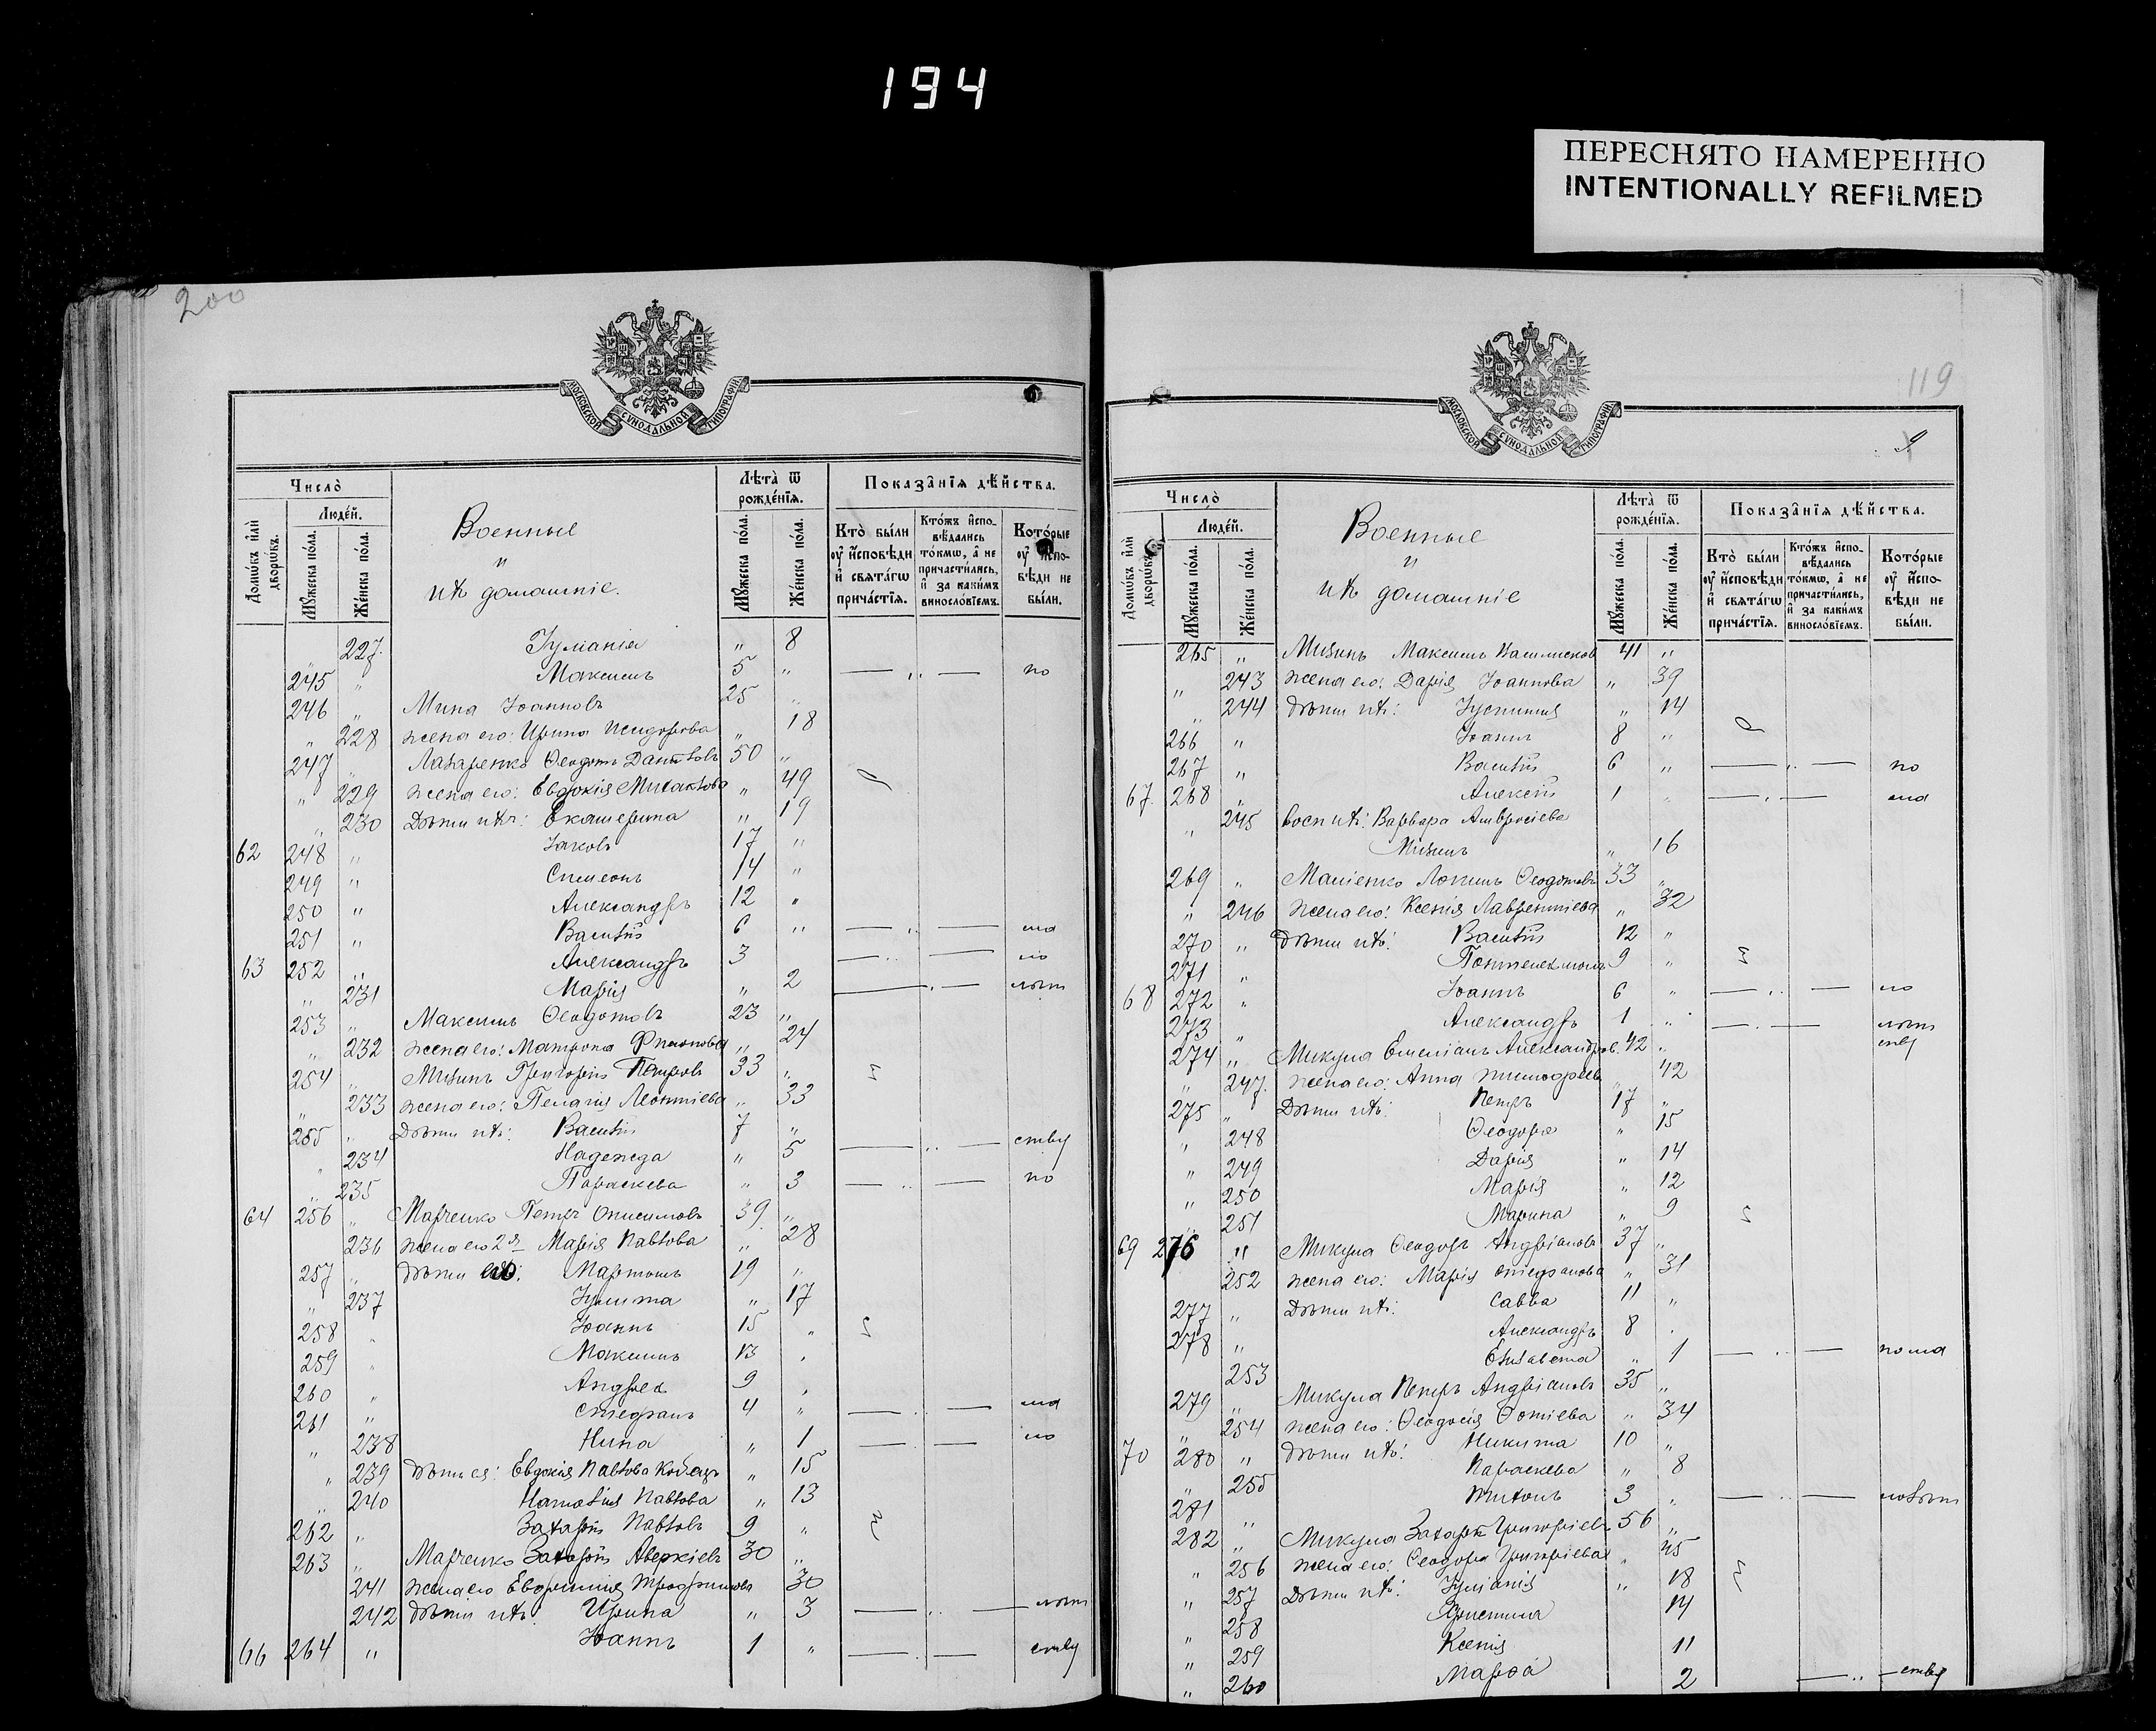 194
ПЕРЕСНЯТО НАМЕРЕННО
INTENTIONALLY REFILMED
200
МОСКОВСКОЙ СѴНОДАЛЬНОЙ ТИПОГРАФІИ
Число̀
Людей.
Домѡвъ и҆лѝ дворѡвъ.
Мꙋжеска по́ла.
Же́нска по́ла.
Военные
и
ихъ домашніе.
Лѣта̀ ѿ рожде́нїѧ.
Мꙋжеска по́ла.
Же́нска по́ла.
Показа̑нїѧ дѣ́йства.
Кто̀ бы́ли ᲂу҆ и҆сповѣди и҆ свѧта́гѡ прича́стїѧ.
Кто́жъ и҆спо-вѣдались то́кмѡ, а҆ не причасти́лись, и҆ за каки́мъ винословїемъ.
Кото́рые ᲂу҆ и҆спо-вѣди не бы́ли.
227 Іуліанія " 8
245 " Максимъ 5 " — " — по
246 " Мина Іоанновъ 25 "
" 228 жена его: Ирина Исидорова " 18
247 " Лазаренко Ѳеодотъ Даниловъ 50 "
" 229 жена его: Евдокія Михайлова " 49
" 230 Дѣти ихъ: Екатерина " 19
62 248 " Іаковъ 17 "
249 " Симеонъ 14 "
250 " Александръ 12 "
251 " Василій 6 " — " — ма
63 252 " Александръ 3 — " — ло
" 231 Марія " 2 — " — лѣт
253 " Максимъ Ѳеодотовъ 23 "
" 232 жена его: Матрона " 24
254 " Мизинъ Григорій Петровъ 33 "
" 233 жена его: Пелагія Леонтіева " 33
255 " Дѣти ихъ: Василій 7 "
" 234 Надежда " 5 — " — ству
" 235 Параскева " 3 — " — по
64 256 " Марченко Петръ Онисимовъ 39 "
236 жена его 2я Марія Павлова " 28
257 " Дѣти его: Мартинъ 19 "
" 237 Іулитта " 17
258 " Іоаннъ 15 "
259 " Максимъ 13 "
260 " Андрей 9 "
261 " Стефанъ 4 " — " — ма
" 238 Нина " 1 — " — ло
" 239 Дѣти ея: Евдокія Павлова " 15
" 240 Наталія Павлова " 13
262 " Захарій Павловъ 9 "
263 " Марченко Захарій Аверкіевъ 30 "
241 жена его Евфимія Трофимова 30
242 дѣти ихъ: Ирина " 3 — " — лѣт
66 264 " Іоаннъ 1 " — " — ству
119
9
МОСКОВСКОЙ СѴНОДАЛЬНОЙ ТИПОГРАФІИ
Число̀
Людей.
Домѡвъ и҆лѝ дворѡвъ.
Мꙋжеска по́ла.
Же́нска по́ла.
Военные
и
ихъ домашніе
Лѣта̀ ѿ рожде́нїѧ.
Мꙋжеска по́ла.
Же́нска по́ла.
Показа̑нїѧ дѣ́йства.
Кто̀ бы́ли ᲂу҆ и҆сповѣди и҆ свѧта́гѡ прича́стїѧ.
Кто́жъ и҆спо-вѣдались то́кмѡ, а҆ не причасти́лись, и҆ за каки́мъ винословїемъ.
Кото́рые ᲂу҆ и҆спо-вѣди не бы́ли.
265 " Мизинъ Максимъ 41 "
" 243 жена его: Дарія Іоаннова " 39
" 244 дѣти ихъ: Іустинія " 14
266 " Іоаннъ 8 "
267 " Василій 6 " — " — по
67 268 " Алексій 1 " — " — ма
" 245 восп ихъ: Варвара Амвросіева
Мизинъ " 16
269 " Логинъ Ѳеодотовъ 33 "
" 246 жена его: Ксенія Лаврентіева " 32
270 " Дѣти ихъ: Василій 12 "
271 " Пантелеимонъ 9 "
68 272 " Іоаннъ 6 " — " — ло
273 " Александръ 1 " — " — лѣт
274 " Микула Емеліанъ Александров. 42 " ству
" 247 жена его: Анна Тимоѳеева " 42
275 " Дѣти ихъ: Петръ 17 "
" 248 Ѳеодора " 15
" 249 Дарія " 14
" 250 Марія " 12
" 251 Марина " 9
69 276 " Микула Ѳеодоръ Андріановъ 37 "
252 жена его: Марія Стефанова " 31
277 " Дѣти ихъ: Савва 11 "
278 " Александръ 8 "
253 Елизавета " 1 — " — по ма
279 " Микула Петръ Андріановъ 35 "
" 254 жена его: Ѳеодосія Ѳотіева " 34
70 280 " Дѣти ихъ: Никита 10 "
" 255 Параскева " 8
281 " Титонъ 3 " — " — лолѣт
282 " Микула Захарій Григоріевъ 56 "
" 256 жена его: Ѳеодора Григоріева " 45
" 257 Дѣти ихъ: Іуліанія " 18
" 258 Христина 14
" 259 Ксенія 11
" 260 Марѳа 2 — " — ству